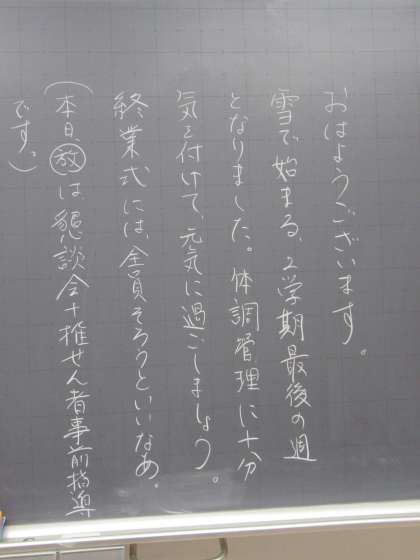 おはようございます。
雪で始まる、2学期最後の週
となりました。体調管理に十分
気を付けて、元気に過ごしましょう。
終業式には、全員そろうといいなあ。
(本日㊙は懇談会+推せん者事前指導
です。)